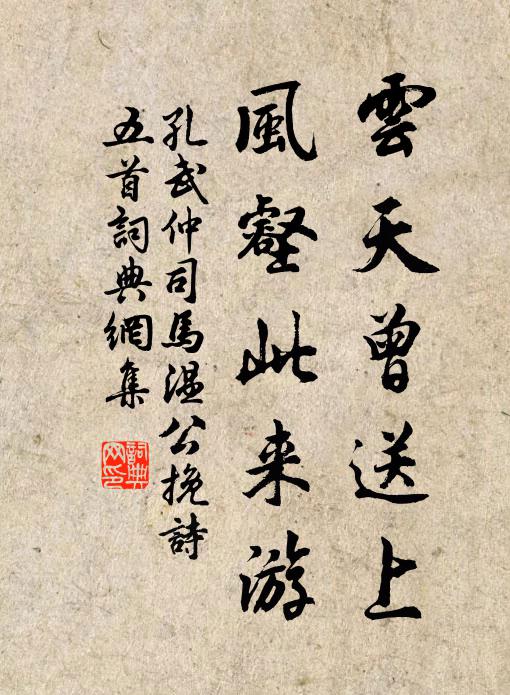 雲天曾送上
風壑此来游
孔武仲司馬温公挽詩
五首詞典網集
詞典
网印